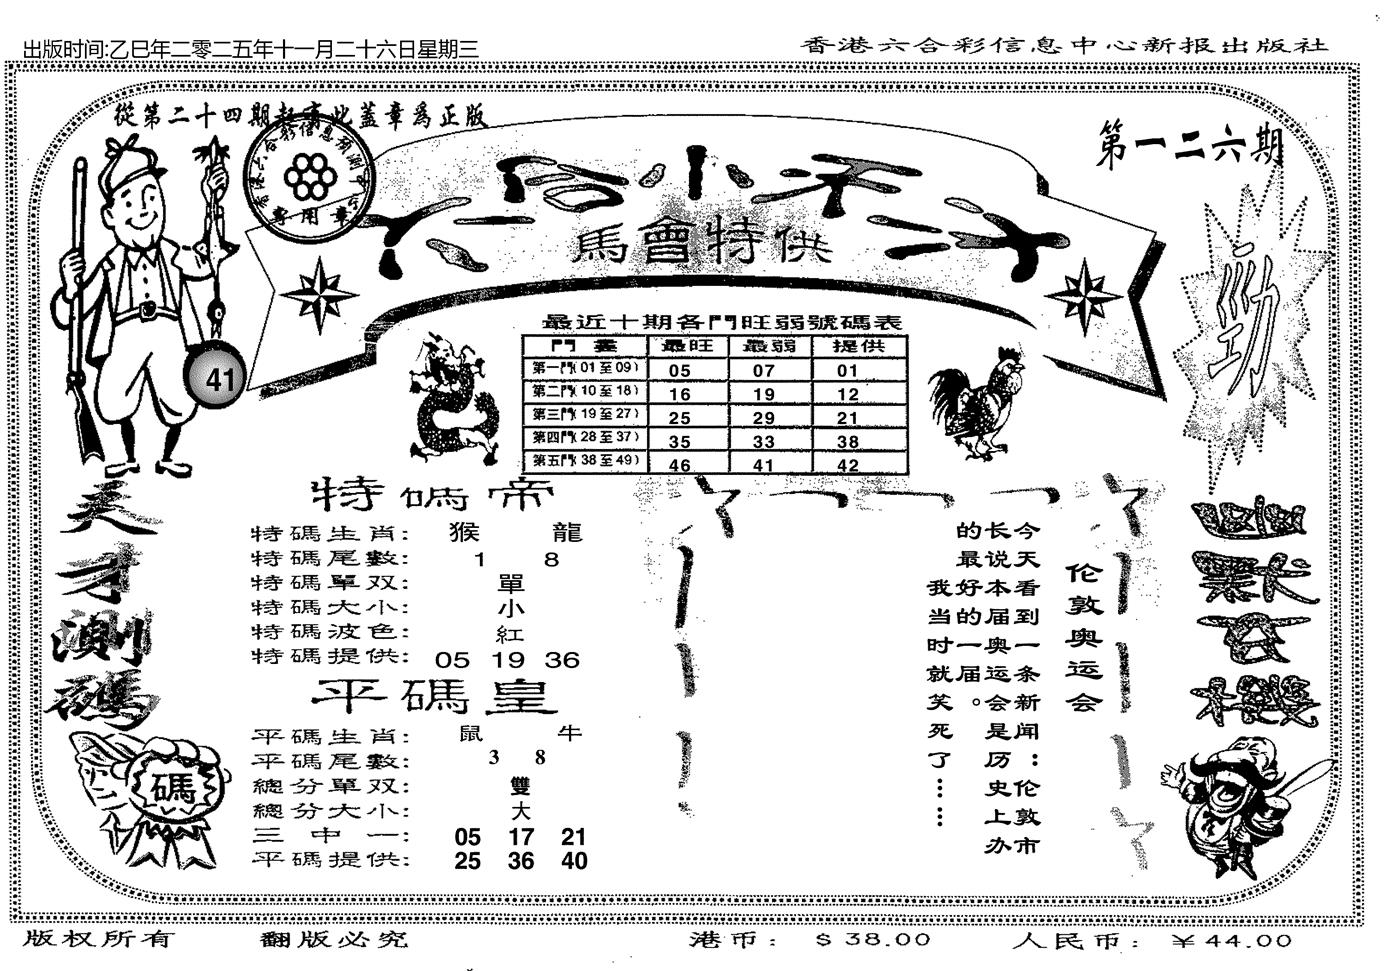 出版时间:乙巳年二零二五年十一月二十六日星期三
香港六合彩信息中心新报出版社
從第二十四期起有此蓋章爲正版
第一二六期
馬會特供
勁
41
最近十期各門旺弱號碼表
門 最旺 最弱 提供
第一門(01至09) 05 07 01
第二門(10至18) 16 19 12
第三門(19至27) 25 29 21
第四門(28至37) 35 33 38
第五門(38至49) 46 41 42
天才測碼
特碼帝
特碼生肖: 猴 龍
特碼尾數: 1 8
特碼單双: 單
特碼大小: 小
特碼波色: 紅
特碼提供: 05 19 36
平碼皇
平碼生肖: 鼠 牛
平碼尾數: 3 8
總分單双: 雙
總分大小: 大
三中一: 05 17 21
平碼提供: 25 36 40
碼
伦敦奥运会
今天看到一条新闻：伦敦市
长说本届奥运会是历史上办
的最好的一届。
我当时就笑死了……
版权所有
翻版必究
港币: $38.00
人民币: ¥44.00